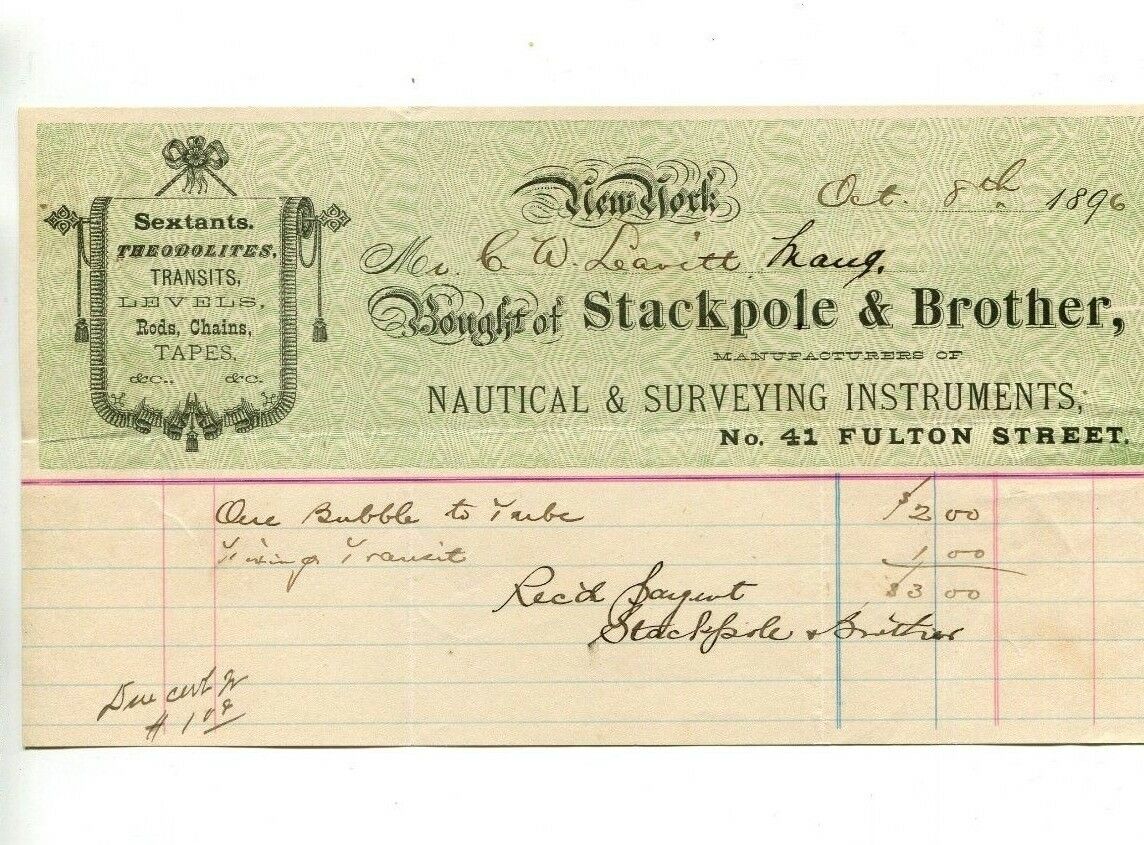 Sextants.
THEODOLITES,
TRANSITS,
LEVELS,
Rods, Chains,
TAPES,
&c., &c.
New York Oct. 8th 1896
Mr. C. W. Leavitt,
Bought of Stackpole & Brother,
MANUFACTURERS OF
NAUTICAL & SURVEYING INSTRUMENTS,
No. 41 FULTON STREET.
One Bubble to Tube $2 00
Fixing Transit 1 00
$3 00
Rec'd Paymt
Stackpole & Brother
Due